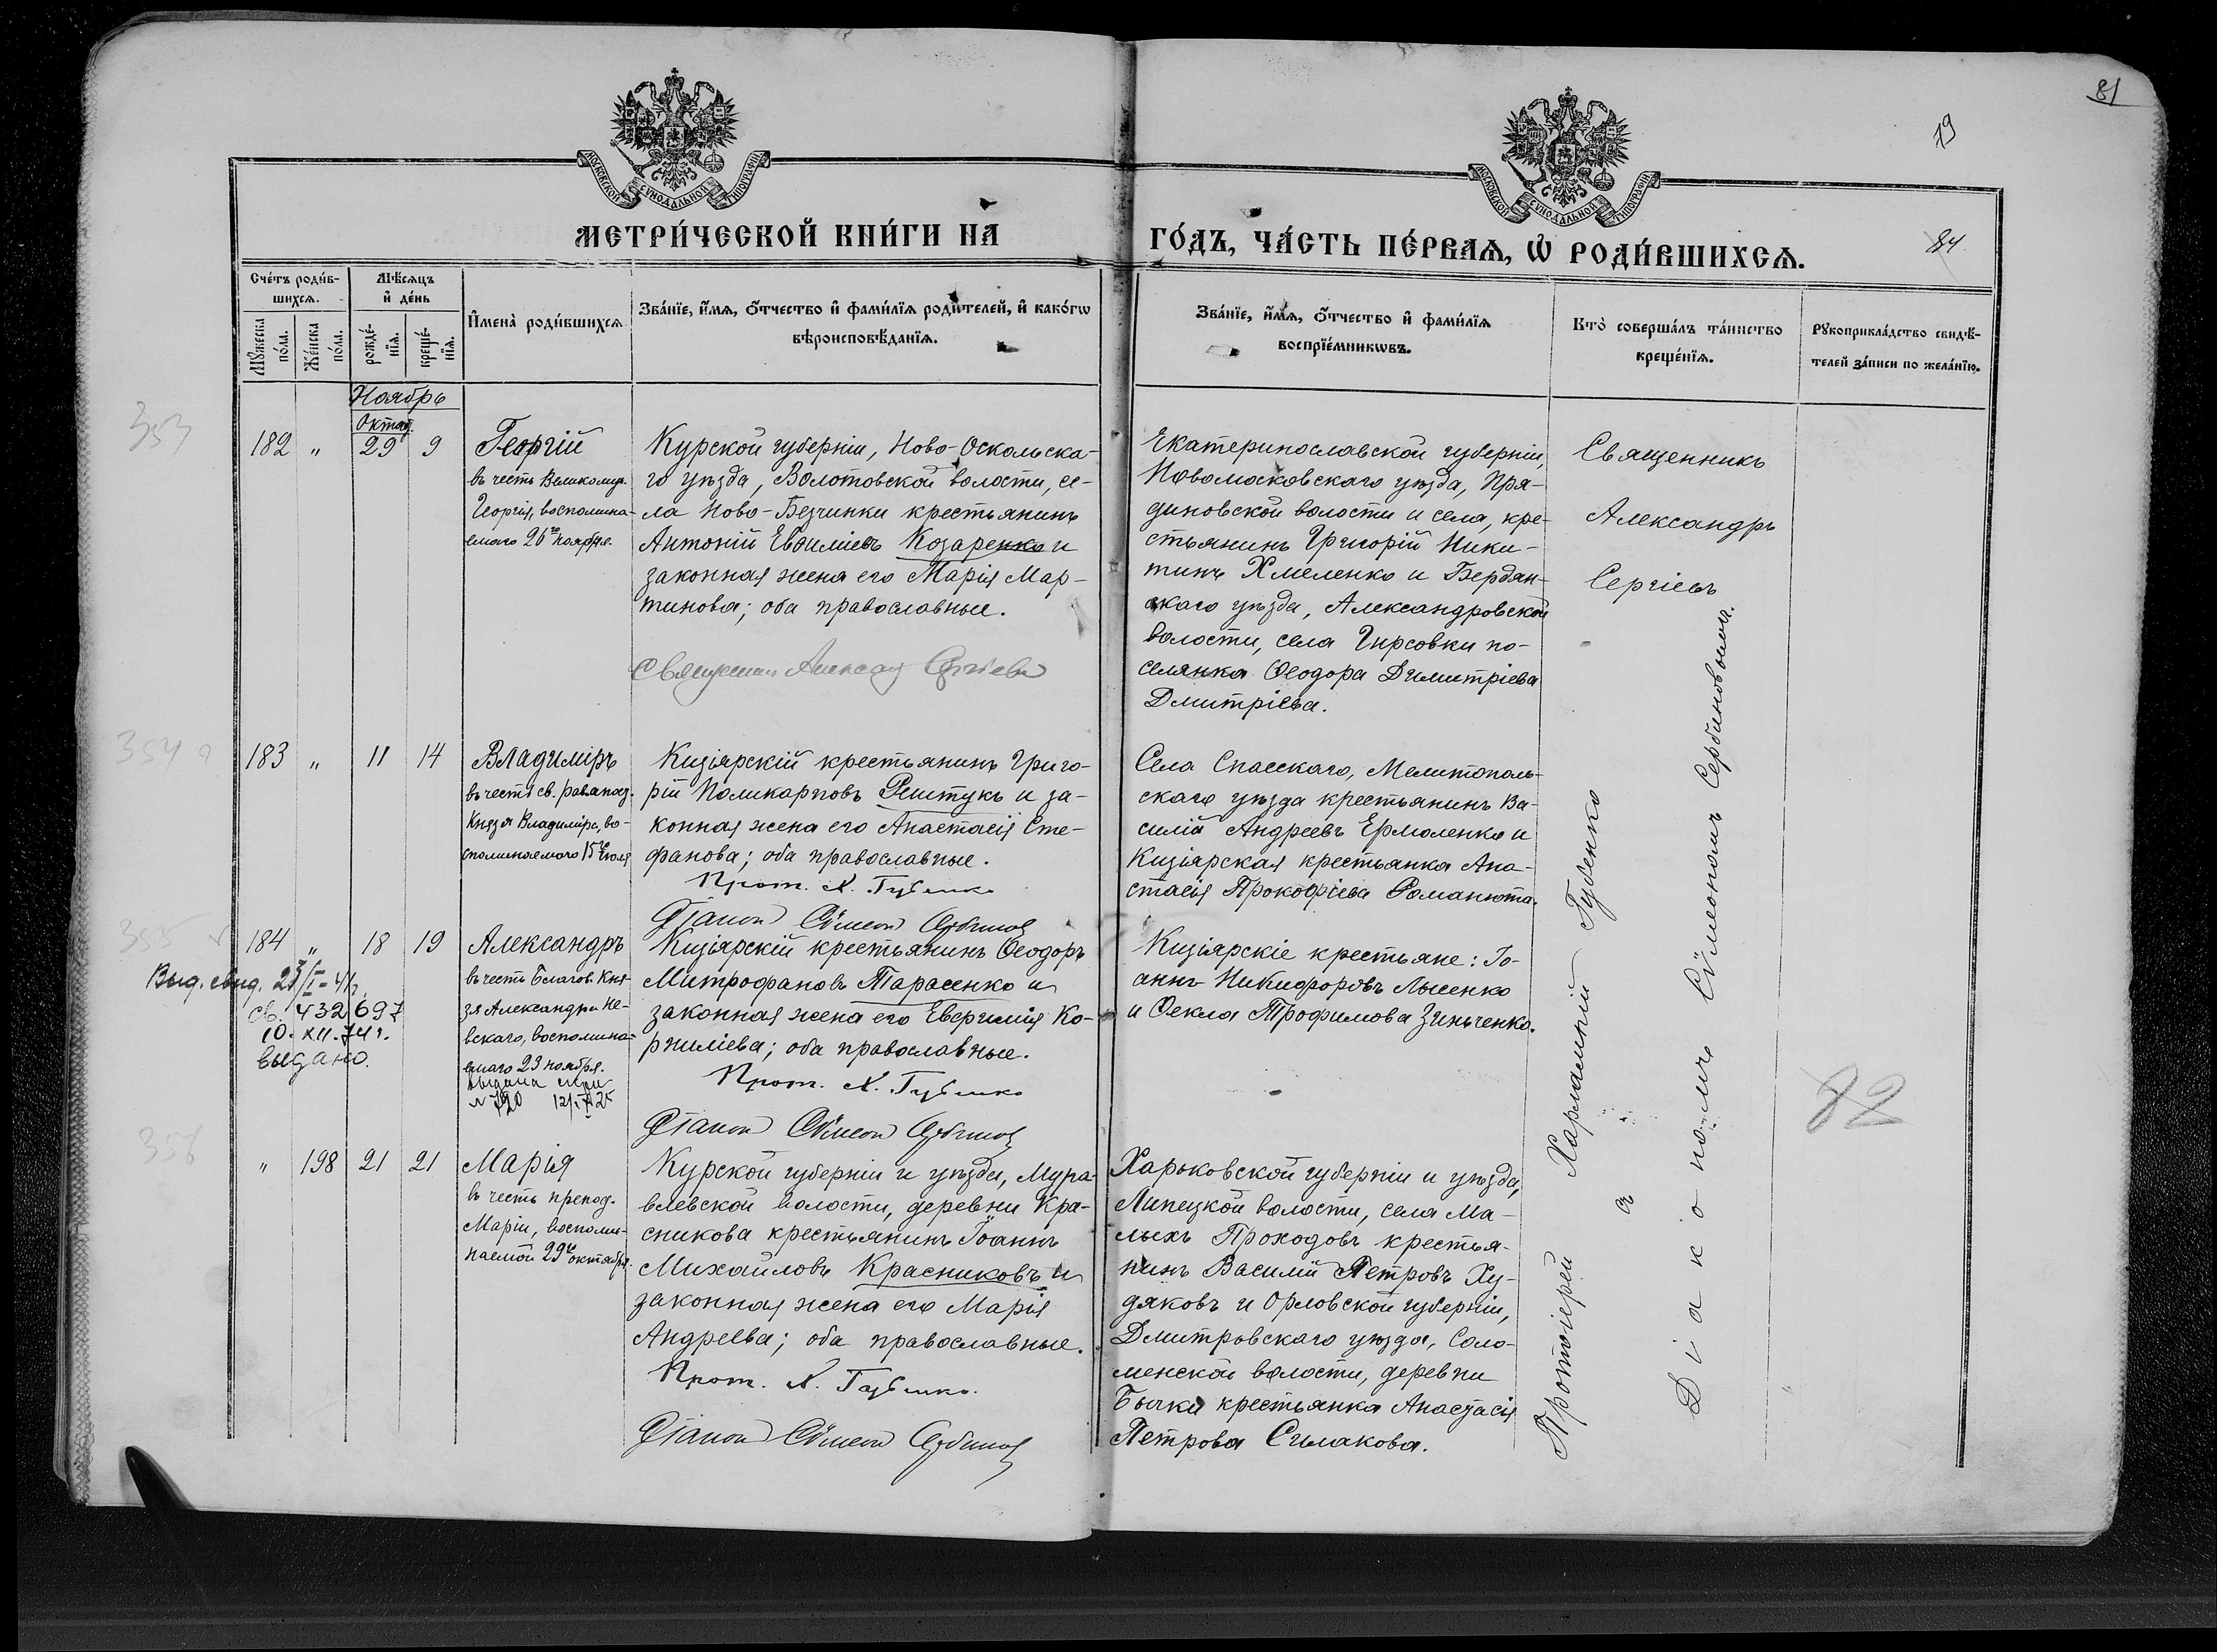 81
19
МОСКОВСКОЙ СУНОДАЛЬНОЙ ТИПОГРАФІИ
МОСКОВСКОЙ СУНОДАЛЬНОЙ ТИПОГРАФІИ
МЕТРИ́ЧЕСКОЙ КНИ́ГИ НА
ГО́ДЪ, ЧА́СТЬ ПЕ́РВАѦ, Ѡ РОДИ́ВШИХСѦ.
84
Сче́тъ роди́в-
шихсѧ.
Мꙋ́жеска
по́ла.
Же́нска
по́ла.
Мѣ́сѧцъ
и҆ де́нь
рожде́-
нїѧ.
креще́-
нїѧ.
И҆мена̀ роди́вшихсѧ
Зва́нїе, и҆́мѧ, ѻ҆́тчество и҆ фами́лїѧ роди́телей, и҆ како́гѡ
вѣроисповѣ́данїѧ.
Зва́нїе, и҆́мѧ, ѻ҆́тчество и҆ фами́лїѧ
воспрїе́мникѡвъ.
Кто̀ соверша́лъ та́инство
креще́нїѧ.
Рꙋкоприкла́дство свидѣ́-
телей за́писи по жела́нїю.
Ноябрь
353
182 „ Октяб. 29 9
Георгій
въ честь Великомуч.
Георгія, воспомина-
емаго 26го ноября.
Курской губерніи, Ново-Оскольска-
го уѣзда, Волотовской волости, се-
ла Ново-Безгинки крестьянинъ
Антоній Евѳиміевъ Козаренко и
законная жена его Марія Мар-
тинова; оба православные.
Священникъ Александръ Сергіевъ
Екатеринославской губерніи,
Новомосковскаго уѣзда, Пря-
диновской волости и села, кре-
стьянинъ Григорій Ники-
тинъ Хмеленко и Бердян-
скаго уѣзда, Александровской
волости, села Гирсовки по-
селянка Ѳеодора Димитріева
Дмитріева.
Священникъ
Александръ
Сергіевъ
354
183 „ 11 14
Владиміръ
въ честь св. равноап.
Князя Владиміра, во-
споминаемаго 15го Іюля
Кизіярскій крестьянинъ Григо-
рій Поликарповъ Решетукъ и за-
конная жена его Анастасія Сте-
фанова; оба православные.
Прот. Х. Губенко
Діаконъ Сѵмеонъ Сербиновъ
Села Спасскаго, Мелитополь-
скаго уѣзда крестьянинъ Ва-
силій Андреевъ Ермоленко и
Кизіярская крестьянка Ана-
стасія Прокофіева Романюта.
355
184 „ 18 19
Александръ
въ честь Благов. Кня-
зя Александра Не-
вскаго, воспомина-
емаго 23 ноября.
Выд. свид. 23/I-41г.
св. 432697
10.XII.74г.
выдано.
Кизіярскій крестьянинъ Ѳеодоръ
Митрофановъ Тарасенко и
законная жена его Евфимія Ко-
рниліева; оба православные.
Прот. Х. Губенко
Діаконъ Сѵмеонъ Сербиновъ
Кизіярскіе крестьяне: Іо-
аннъ Никифоровъ Лысенко
и Ѳекла Трофимова Зинченко.
356
„ 198 21 21
Марія
въ честь препод.
Маріи, воспоми-
наемой 29го октября.
Курской губерніи и уѣзда, Мура-
влевской волости, деревни Кра-
сникова крестьянинъ Іоаннъ
Михаиловъ Красниковъ и
законная жена его Марія
Андреева; оба православные.
Прот. Х. Губенко.
Діаконъ Сѵмеонъ Сербиновъ
Харьковской губерніи и уѣзда,
Липецкой волости, села Ма-
лыхъ Проходовъ крестья-
нинъ Василій Петровъ Ху-
дяковъ и Орловской губерніи,
Дмитровскаго уѣзда, Соло-
менской волости, деревни
Бычки крестьянка Анастасія
Петрова Симакова.
Протоіерей Харлампій Губенко
съ
Діакономъ Сѵмеономъ Сербиновымъ.
82